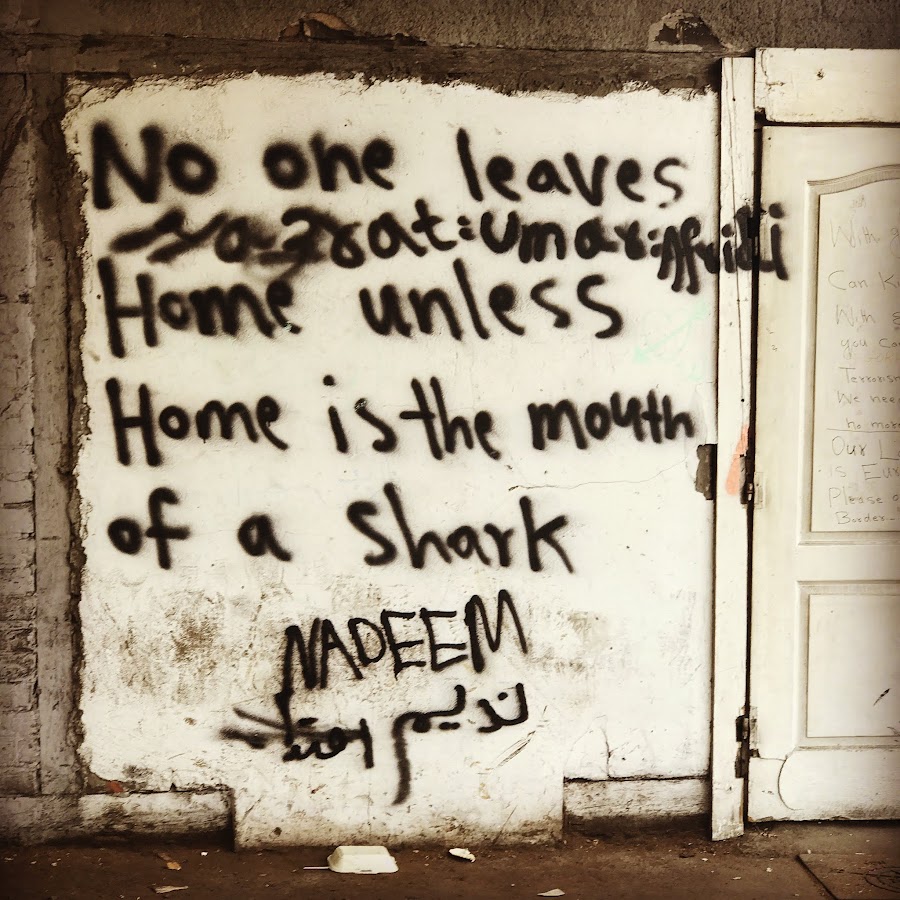 No one leaves
Hazrat:Umar:Afridi
Home unless
Home is the mouth
of a Shark
NADEEM
ندیم
With
Can
With
you
Terrorism
We
no more
Our
is
Please
Border